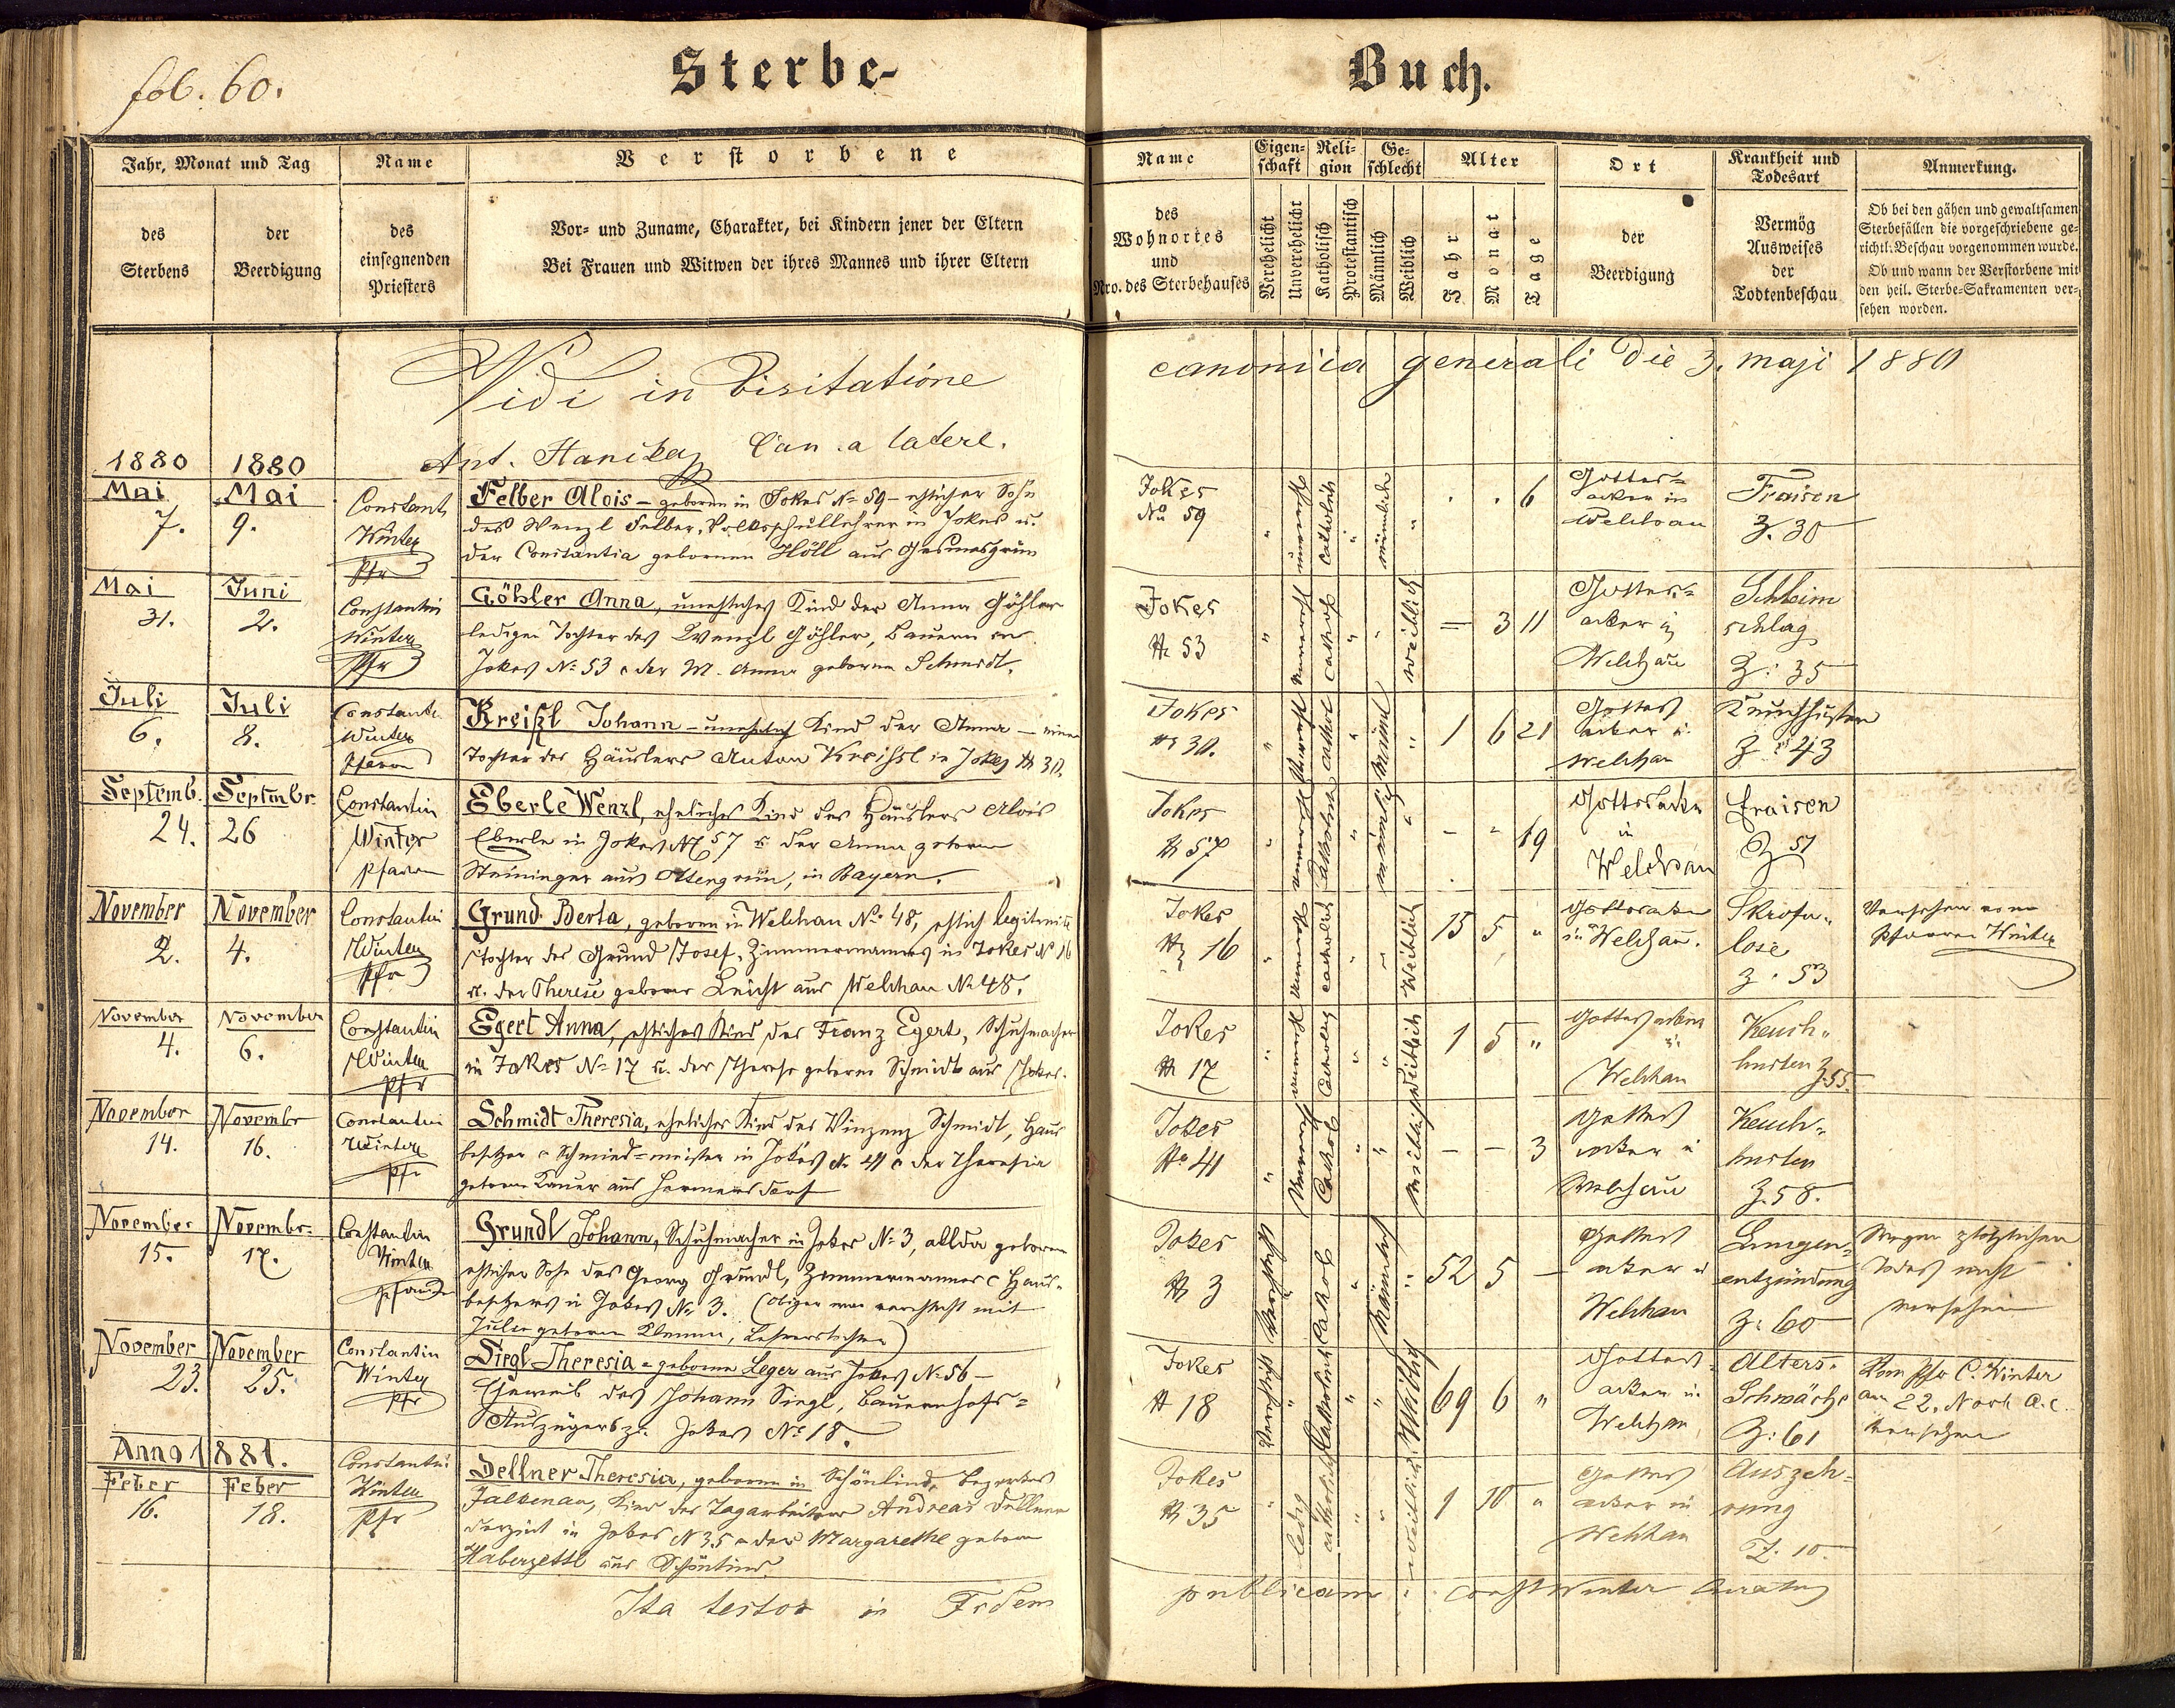 fol. 60.
Sterbe-Buch.
Jahr, Monat und Tag
des Sterbens
der Beerdigung
Name
des
einsegnenden
Priesters
Verstorbene
Vor- und Zuname, Charakter, bei Kindern jener der Eltern
Bei Frauen und Witwen der ihres Mannes und ihrer Eltern
Name
des
Wohnortes
und
Nro. des Sterbehauses
Eigen-
schaft
Verehelicht
Unverehelicht
Reli-
gion
Katholisch
Protestantisch
Ge-
schlecht
Männlich
Weiblich
Alter
Jahr
Monat
Tage
Ort
der
Beerdigung
Krankheit und
Todesart
Vermög
Ausweises
der
Todtenbeschau
Anmerkung.
Ob bei den gähen und gewaltsamen
Sterbefällen die vorgeschriebene ge-
richtl. Beschau vorgenommen wurde.
Ob und wann der Verstorbene mit
den heil. Sterbe-Sakramenten ver-
sehen worden.
Vidi in Visitatione canonica generali die 3. maji 1880
Ant. Hanika Can. a latere.
1880 1880
Mai 7.
Mai 9.
Constant
Winter
Pfr
Felber Alois – geboren in Jokes № 59 – ehlicher Sohn
des Wenzl Felber, Volksschullehrer in Jokes u.
der Constantia gebornen Höll aus Gesmesgrün
Jokes
№ 59
unverehl
catholisch
männlich
6
Gottes-
acker in
Welchau
Fraisen
Z. 30
Mai 31.
Juni 2.
Constantin
Winter
Pfr
Göhler Anna, unehliches Kind der Anna Göhler
ledigen Tochter des Wenzl Göhler, Bauern in
Jokes № 53 u der M. Anna geborne Schmidt.
Jokes
№ 53
weiblich
3 11
Gottes-
acker in
Welchau
Schleim
schlag
Z: 35
Juli 6.
Juli 8.
Constantin
Winter
Pfarrer
Kreißl Johann – unehelich Kind der Anna –
Tochter des Häuslers Anton Kreißl in Jokes № 30.
Jokes
№ 30.
1 6 21
Gottes
acker in
Welchau
Keuchhusten
Z: 43
Septemb. 24.
Septmbr. 26
Constantin
Winter
Pfarrer
Eberle Wenzl, eheliches Kind des Häuslers Alois
Eberle in Jokes № 57 u. der Anna geborne
Steininger aus Ottengrün, in Bayern.
Jokes
№ 57
männlich
19
Gottesacker
in
Welchau
Fraisen
Z 51
November 2.
November 4.
Constantin
Winter
Pfr
Grund Berta, geboren in Welchau № 48, ehlich legitimirte
Tochter des Grund Josef, Zimmermannes in Jokes № 16
u. der Therese geborne Leicht aus Welchau № 48.
Jokes
№ 16
catholisch
Weiblich
15 5 "
Gottesacker
in Welchau.
Skrofu-
lose
Z. 53
Versehen vom
Pfarrer Winter
November 4.
November 6.
Constantin
Winter
Pfr
Egert Anna, ehliches Kind des Franz Egert, Schuhmacher
in Jokes № 17 u. der Therese geborne Schmidt aus Jokes.
Jokes
№ 17
weiblich
1 5 "
Gottesacker
in
Welchau
Keuch-
husten Z. 55.
November 14.
Novembr 16.
Constantin
Winter
Pfr
Schmidt Theresia, eheliches Kind des Vinzenz Schmidt, Haus
besitzer u Schmied-meister in Jokes № 41 u der Theresia
geborne Bauer aus Hermersdorf
Jokes
№ 41
Cathol
weiblich
– – 3
Gottes
acker in
Welchau
Keuch-
husten
Z. 58.
November 15.
Novembr. 17.
Constantin
Winter
Pfarrer
Grundl Johann, Schuhmacher in Jokes № 3, allda geboren
ehlicher Sohn des Georg Grundl, Zimmermannes u Haus-
besitzers in Jokes № 3. (Obiger war verehlicht mit
Julie geborne Klemm, Lehrerstochter)
Jokes
№ 3
Verehlicht
Cathol
Männlich
52 5 –
Gottes
acker in
Welchau
Lungen-
entzündung
Z: 60
Wegen plötzlichen
Todes nicht
versehen
November 23.
November 25.
Constantin
Winter
Pfr
Siegl Theresia – geborne Leger aus Jokes № 56 –
Eheweib des Johann Siegl, Bauernhofs-
Auszüglers zu Jokes № 18.
Jokes
№ 18
Verehlicht
Katholisch
Weiblich
69 6 "
Gottes-
acker in
Welchau
Alters-
Schwäche
Z: 61
Vom Pfr C. Winter
am 22. Novb a.c.
versehen
Anno 1881.
Feber 16.
Feber 18.
Constantin
Winter
Pfr
Dellner Theresia, geboren in Schönlind, Bezirkes
Falkenau, Kind des Tagarbeiters Andreas Dellner
derzeit in Jokes № 35 u der Margarethe geborn
Haberzettl aus Schönlind.
Jokes
№ 35
ledig
catholisch
weiblich
1 10 "
Gottes
acker in
Welchau
Auszeh-
rung
Z. 10.
Ita testor in Fidem publicam Const Winter Curatus